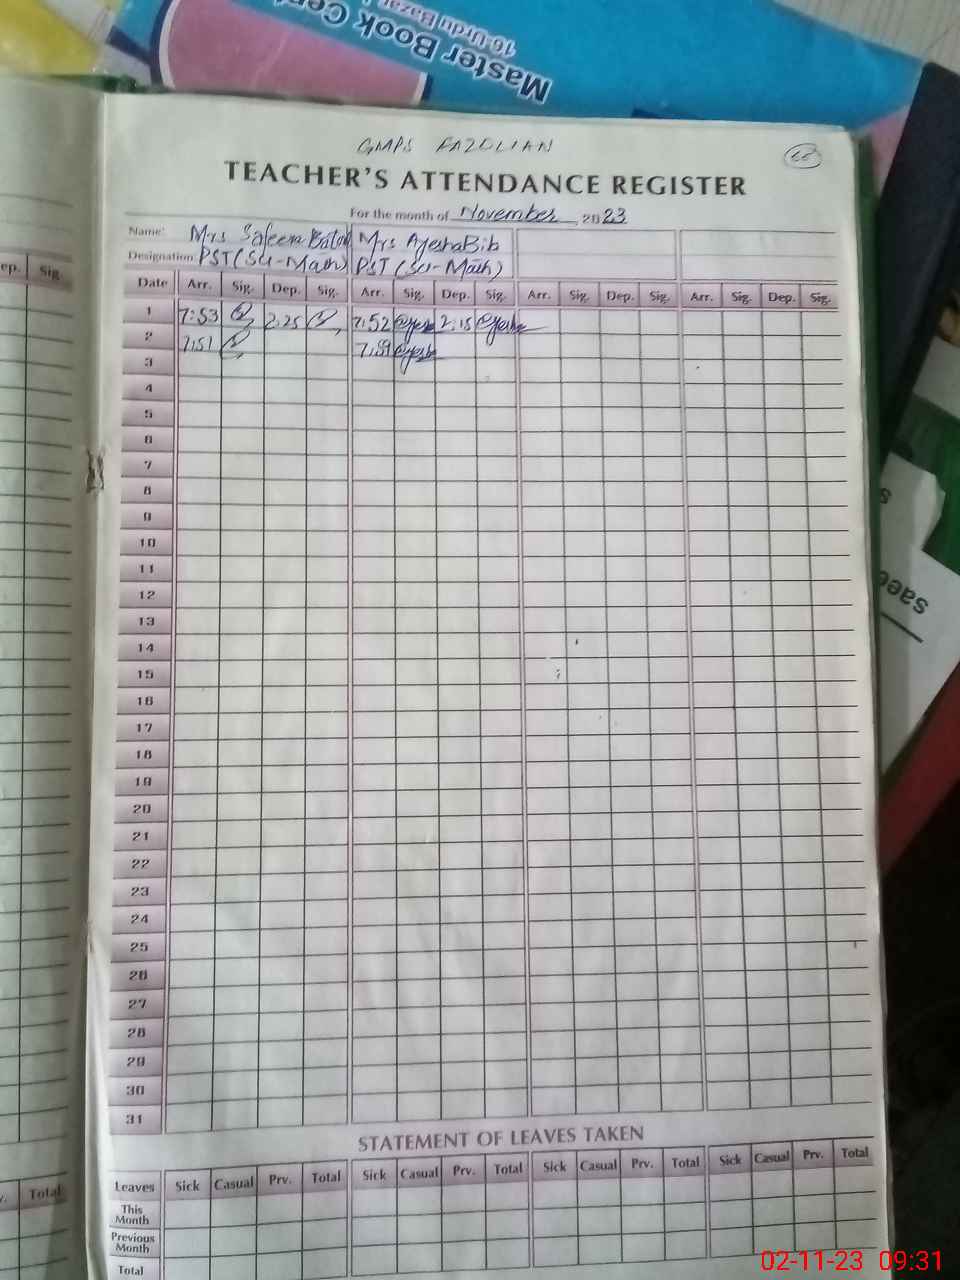 Master Book Cent
16-Urdu Bazar
GMPS FAZOLIAN
TEACHER'S ATTENDANCE REGISTER
For the month of November, 2023
Name: Mrs Saleem Mrs Ayesha Bib
Designation: PST (Sci-Math) PST (Sci-Math)
ep. Sig. Date Arr. Sig. Dep. Sig. Arr. Sig. Dep. Sig. Arr. Sig. Dep. Sig. Arr. Sig. Dep. Sig.
1 7:53 2:25 7:52 Ayesha 2:15 Ayesha
2 7:51 Ayesha
3
4
5
6
7
8
9
10
11
12
13
14
15
16
17
18
19
20
21
22
23
24
25
26
27
28
29
30
31
STATEMENT OF LEAVES TAKEN
v. Total Leaves Sick Casual Prv. Total Sick Casual Prv. Total Sick Casual Prv. Total Sick Casual Prv. Total
This Month
Previous Month
Total
saee
s
02-11-23 09:31